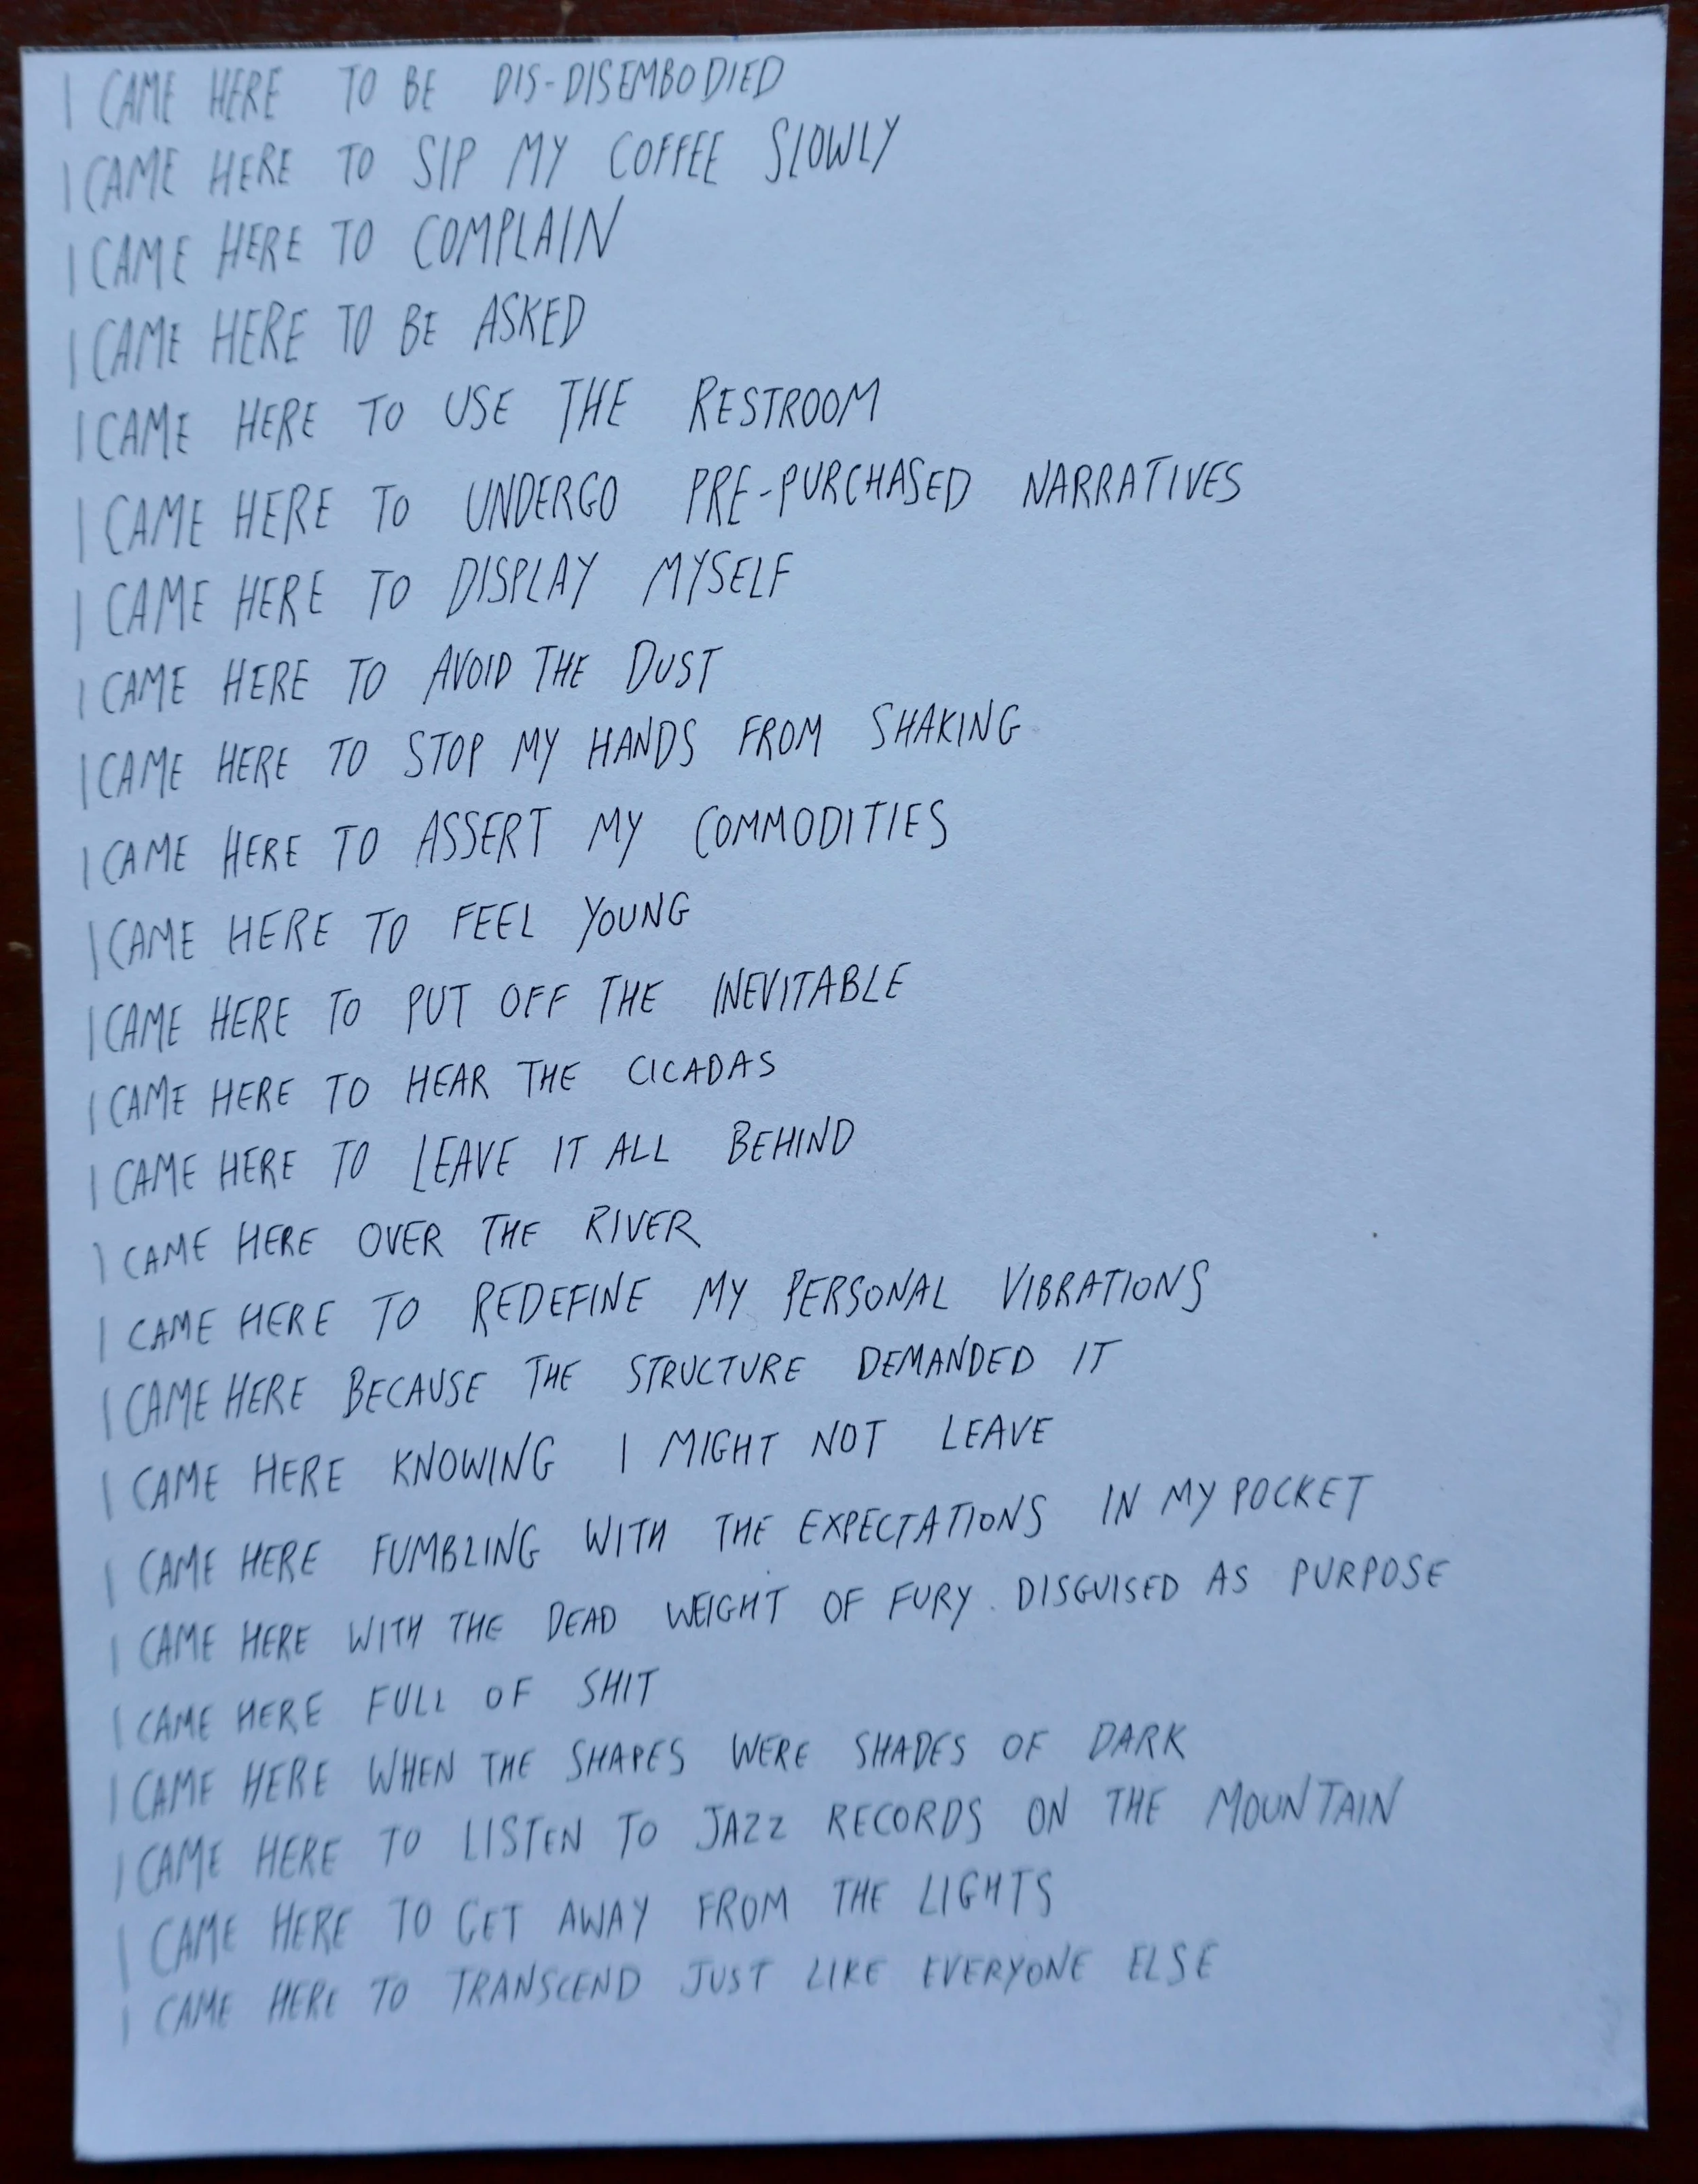 I CAME HERE TO BE DIS-DISEMBODIED
I CAME HERE TO SIP MY COFFEE SLOWLY
I CAME HERE TO COMPLAIN
I CAME HERE TO BE ASKED
I CAME HERE TO USE THE RESTROOM
I CAME HERE TO UNDERGO PRE-PURCHASED NARRATIVES
I CAME HERE TO DISPLAY MYSELF
I CAME HERE TO AVOID THE DUST
I CAME HERE TO STOP MY HANDS FROM SHAKING
I CAME HERE TO ASSERT MY COMMODITIES
I CAME HERE TO FEEL YOUNG
I CAME HERE TO PUT OFF THE INEVITABLE
I CAME HERE TO HEAR THE CICADAS
I CAME HERE TO LEAVE IT ALL BEHIND
I CAME HERE OVER THE RIVER
I CAME HERE TO REDEFINE MY PERSONAL VIBRATIONS
I CAME HERE BECAUSE THE STRUCTURE DEMANDED IT
I CAME HERE KNOWING I MIGHT NOT LEAVE
I CAME HERE FUMBLING WITH THE EXPECTATIONS IN MY POCKET
I CAME HERE WITH THE DEAD WEIGHT OF FURY DISGUISED AS PURPOSE
I CAME HERE FULL OF SHIT
I CAME HERE WHEN THE SHAPES WERE SHADES OF DARK
I CAME HERE TO LISTEN TO JAZZ RECORDS ON THE MOUNTAIN
I CAME HERE TO GET AWAY FROM THE LIGHTS
I CAME HERE TO TRANSCEND JUST LIKE EVERYONE ELSE